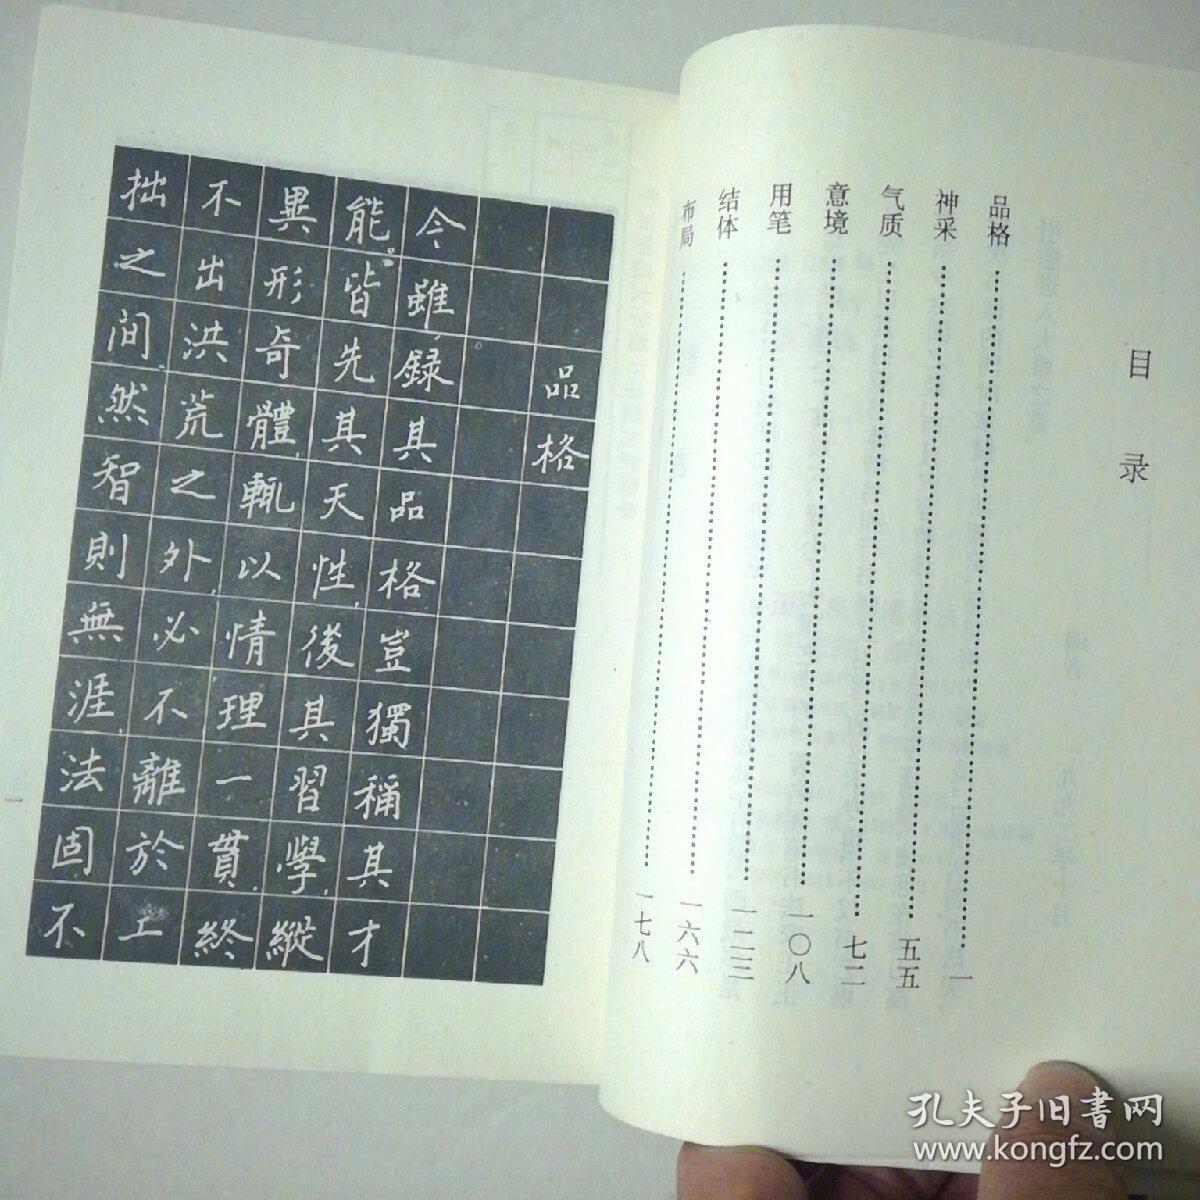 目录
品格……一
神采……五五
气质……七二
意境……一〇八
用笔……一二三
结体……一六六
布局……一七八
品格
今雖録其品格豈獨稱其才
能。皆先其天性,後其習學,縱
異形奇體,輒以情理一貫,終
不出洪荒之外,必不離於工
拙之間然智則無涯法固不
一
孔夫子旧书网
www.kongfz.com